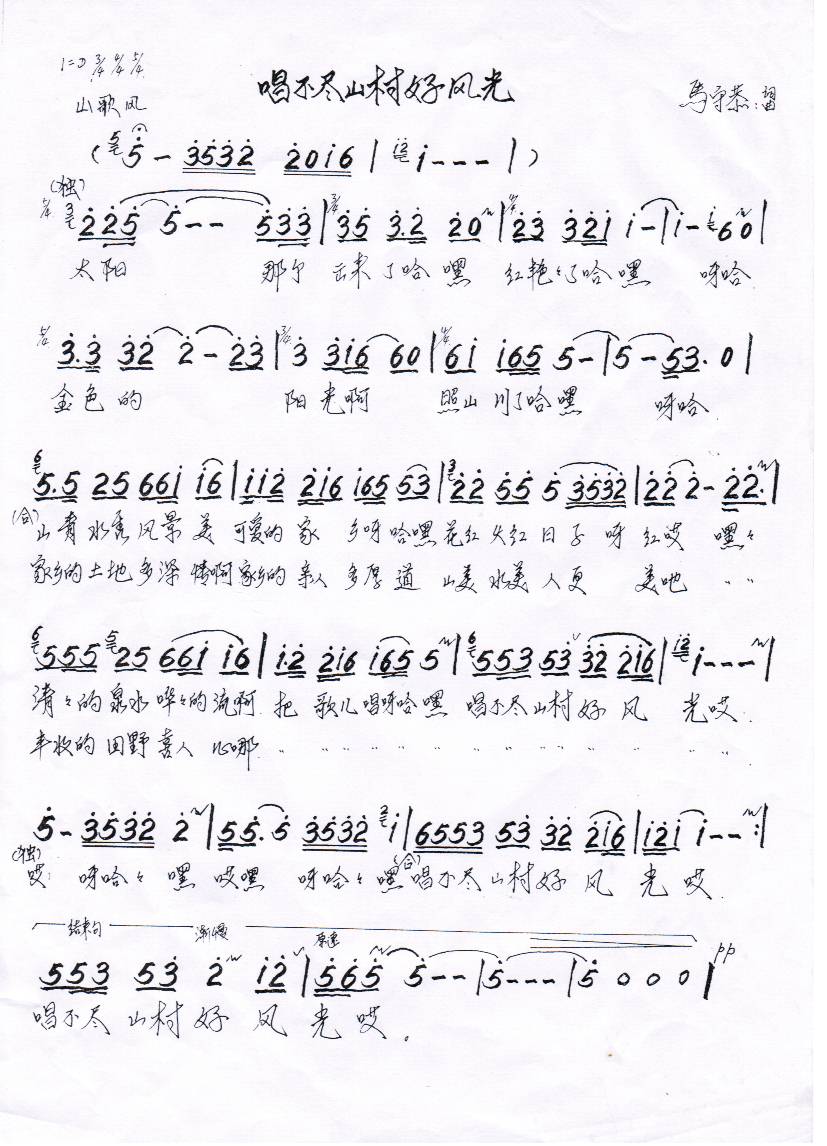 唱不尽山村好风光
1=D 3/4 4/4 5/4
山歌风
馬守恭:
( 5 - 3532 2016 | i - - - | )
(独)
225 5 - - 533 | 35 3.2 20 | 23 321 i - | i - 60 |
太阳 那个 出来了哈嘿 红艳々了哈嘿 呀哈
3.3 32 2 - 23 | 3 3i6 60 | 6i i65 5 - | 5 - 53. 0 |
金色的 阳光啊 照山川了哈嘿 呀哈
5.5 25 66i i6 | ii2 2i6 i65 53 | 22 55 5 3532 | 22 2 - 22. |
(合) 山青水秀风景美 可爱的家 乡呀哈嘿花红火红日子呀 红哎 嘿々
家乡的土地多深情啊家乡的亲人多厚道 山美水美人更 美吔 〃 〃
555 25 66i i6 | i.2 2i6 i65 5 | 553 53 32 2i6 | i - - - |
清々的泉水哗々的流啊 把歌儿唱呀哈嘿 唱不尽山村好风 光哎
丰收的田野喜人心哪 〃 〃 〃 〃 〃 〃 〃 〃 〃 〃 〃 〃 〃 〃
5 - 3532 2 | 55. 5 3532 i | 6553 53 32 2i6 | i2i i - - :|
(独) 哎: 呀哈々 嘿 哎嘿 呀哈々 嘿 (合) 唱不尽山村好风 光 哎
结束句 渐慢 原速 pp
553 53 2 i2 | 565 5 - - | 5 - - - | 5 0 0 0 |
唱不尽山村好风光哎。